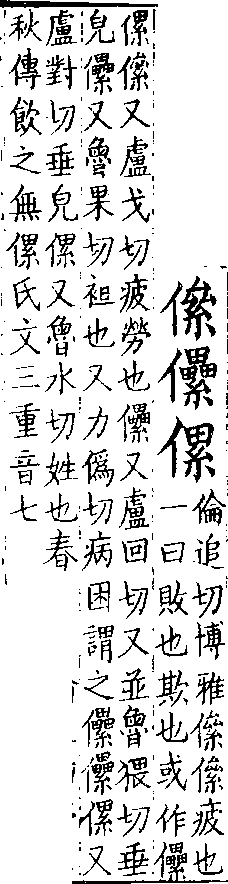 㒍儽傫
倫追切博雅㒍㒍疲也
一曰敗也欺也或作儽
傫㒍又盧戈切疲勞也儽又盧回切又並魯猥切垂
皃儽又魯果切袒也又力僞切病困謂之儽儽傫又
盧對切垂皃傫又魯水切姓也春
秋傳飲之無傫氏文三重音七